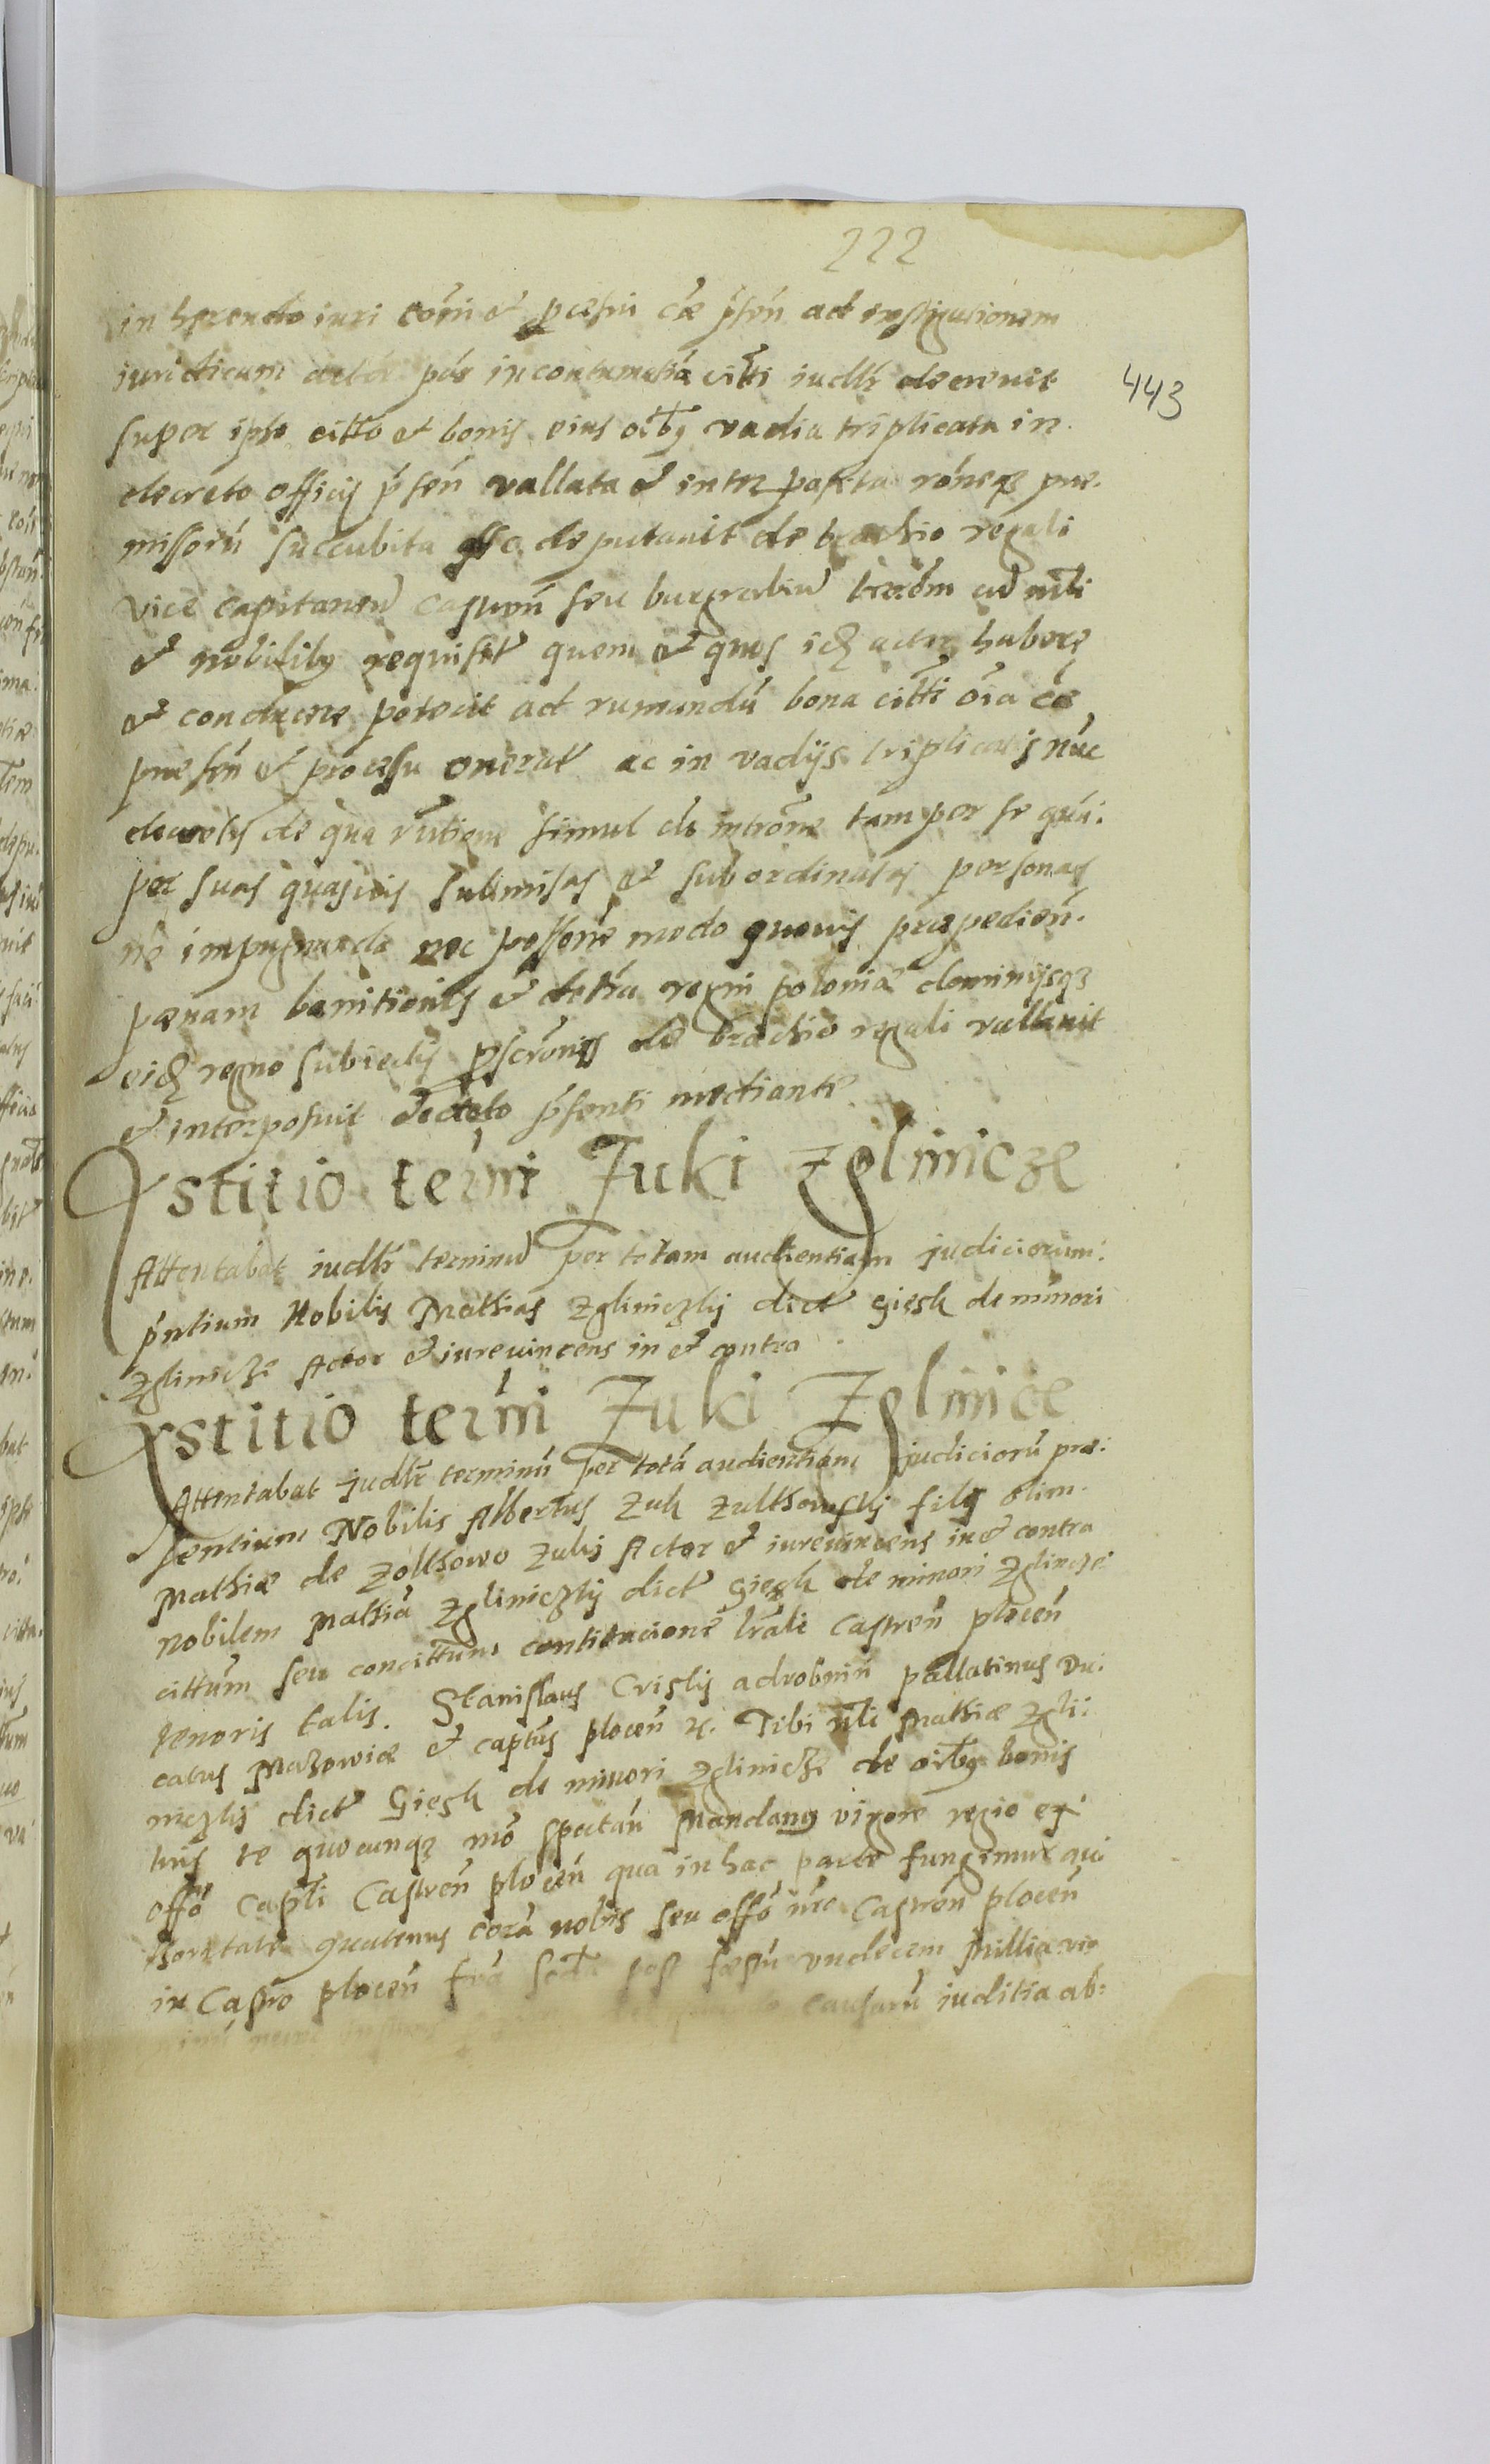 222
443
in herendo iuri cōni et pcessui cæ p̄sen̄ ad instigationem
iuridicam actōr pōs in contumatiā citti iudlr decrevit
super ipso citto et bonis eius oībꝫ vadia triplicata in
decreto officij p̄sen̄ vallata et interposita rōneqꝫ pre.
missorū succubita esse deputavit de brachio regali
vice capitaneū Castren̄ seu burgrabiū terrōm cū mlti
et nobilibꝫ requisit quem et quos idē actor habere
et conducere poterit ad rumandū bona citti oīa cæ
presen̄ et processu onerat ac in vadijs triplicatis nūc
decretis de qua rumatione simul de intrōne tam per se quā.
per suas quasvis submissas et subordinatas personas
nō impugnanda nec possone modo quovis præpedien̄.
pœnam banitionis et de tra regni poloniæ dominijsqꝫ
eidē regno subiectis pscrōnis de brachio regali vallavit
et interposuit decreto p̄senti mediante.
Astitio termi Zuki Zglinicze
Attentabat iudlr terminū per totam audientiam judiciorum
p̄ntium Nobilis Mathias Zgliniczky dict Giesk de minori
Zglinicze Actor et iurevincens in et contra
Astitio termi Zuki Zglinice
Attentabat judlr terminū per totā audientiam judiciorū præ:
sentium Nobilis Albertus Zuk Zulkowsky filꝫ olim.
Mathiæ de Zolkowo Zuki Actor et iurevincens in et contra
Nobilem Mathiā Zgliniczky dict Giesk de minori Zglincze
cittum seu concittum contitacione lrāli Castren̄ plocen̄
tenoris talis. Stanislaus Crisky a drobnin̄ pallatinus Du:
catus Mazowiæ et captus plocen̄ ꝛc. Tibi nli Mathiæ Zgli:
niczky dict Giesk de minori Zglinicze de oībꝫ bonis
tuis te quocunqꝫ mō spectan̄ Mandamꝫ vigore regio ex
offō capti Castren̄ plocen̄ qua in hac parte fungimur au
thoritate quatenus corā nobis seu offō nro Castren̄ plocen̄
in Castro plocen̄ fria scda post festū undecem Millia vir
causarū juditia ab: